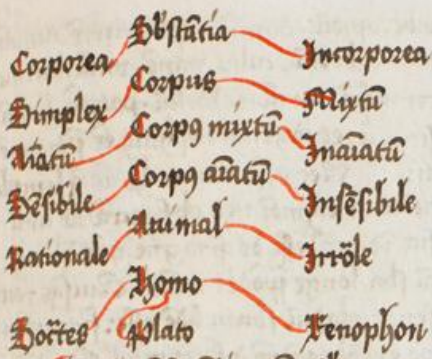 Sb̄stātia
Corporea Incorporea
Corpus
Simplex Mixtū
Corpꝯ mixtū
Aīatū Inaīatū
Corpꝯ aīatū
Sēsibile Insēsibile
Animal
Rationale Irrōle
Homo
Socrtes Plato Xenophon